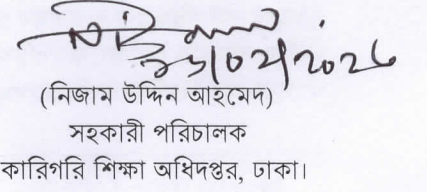 (নিজাম উদ্দিন আহমেদ)
সহকারী পরিচালক
কারিগরি শিক্ষা অধিদপ্তর, ঢাকা।